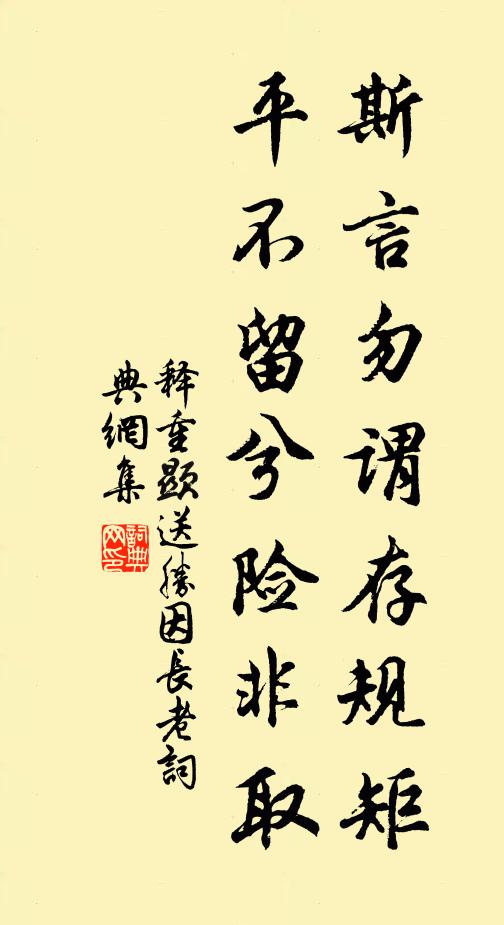 斯言勿谓存规矩
平不留兮险非取
释重顯送勝因長老詞
典網集
詞典網印